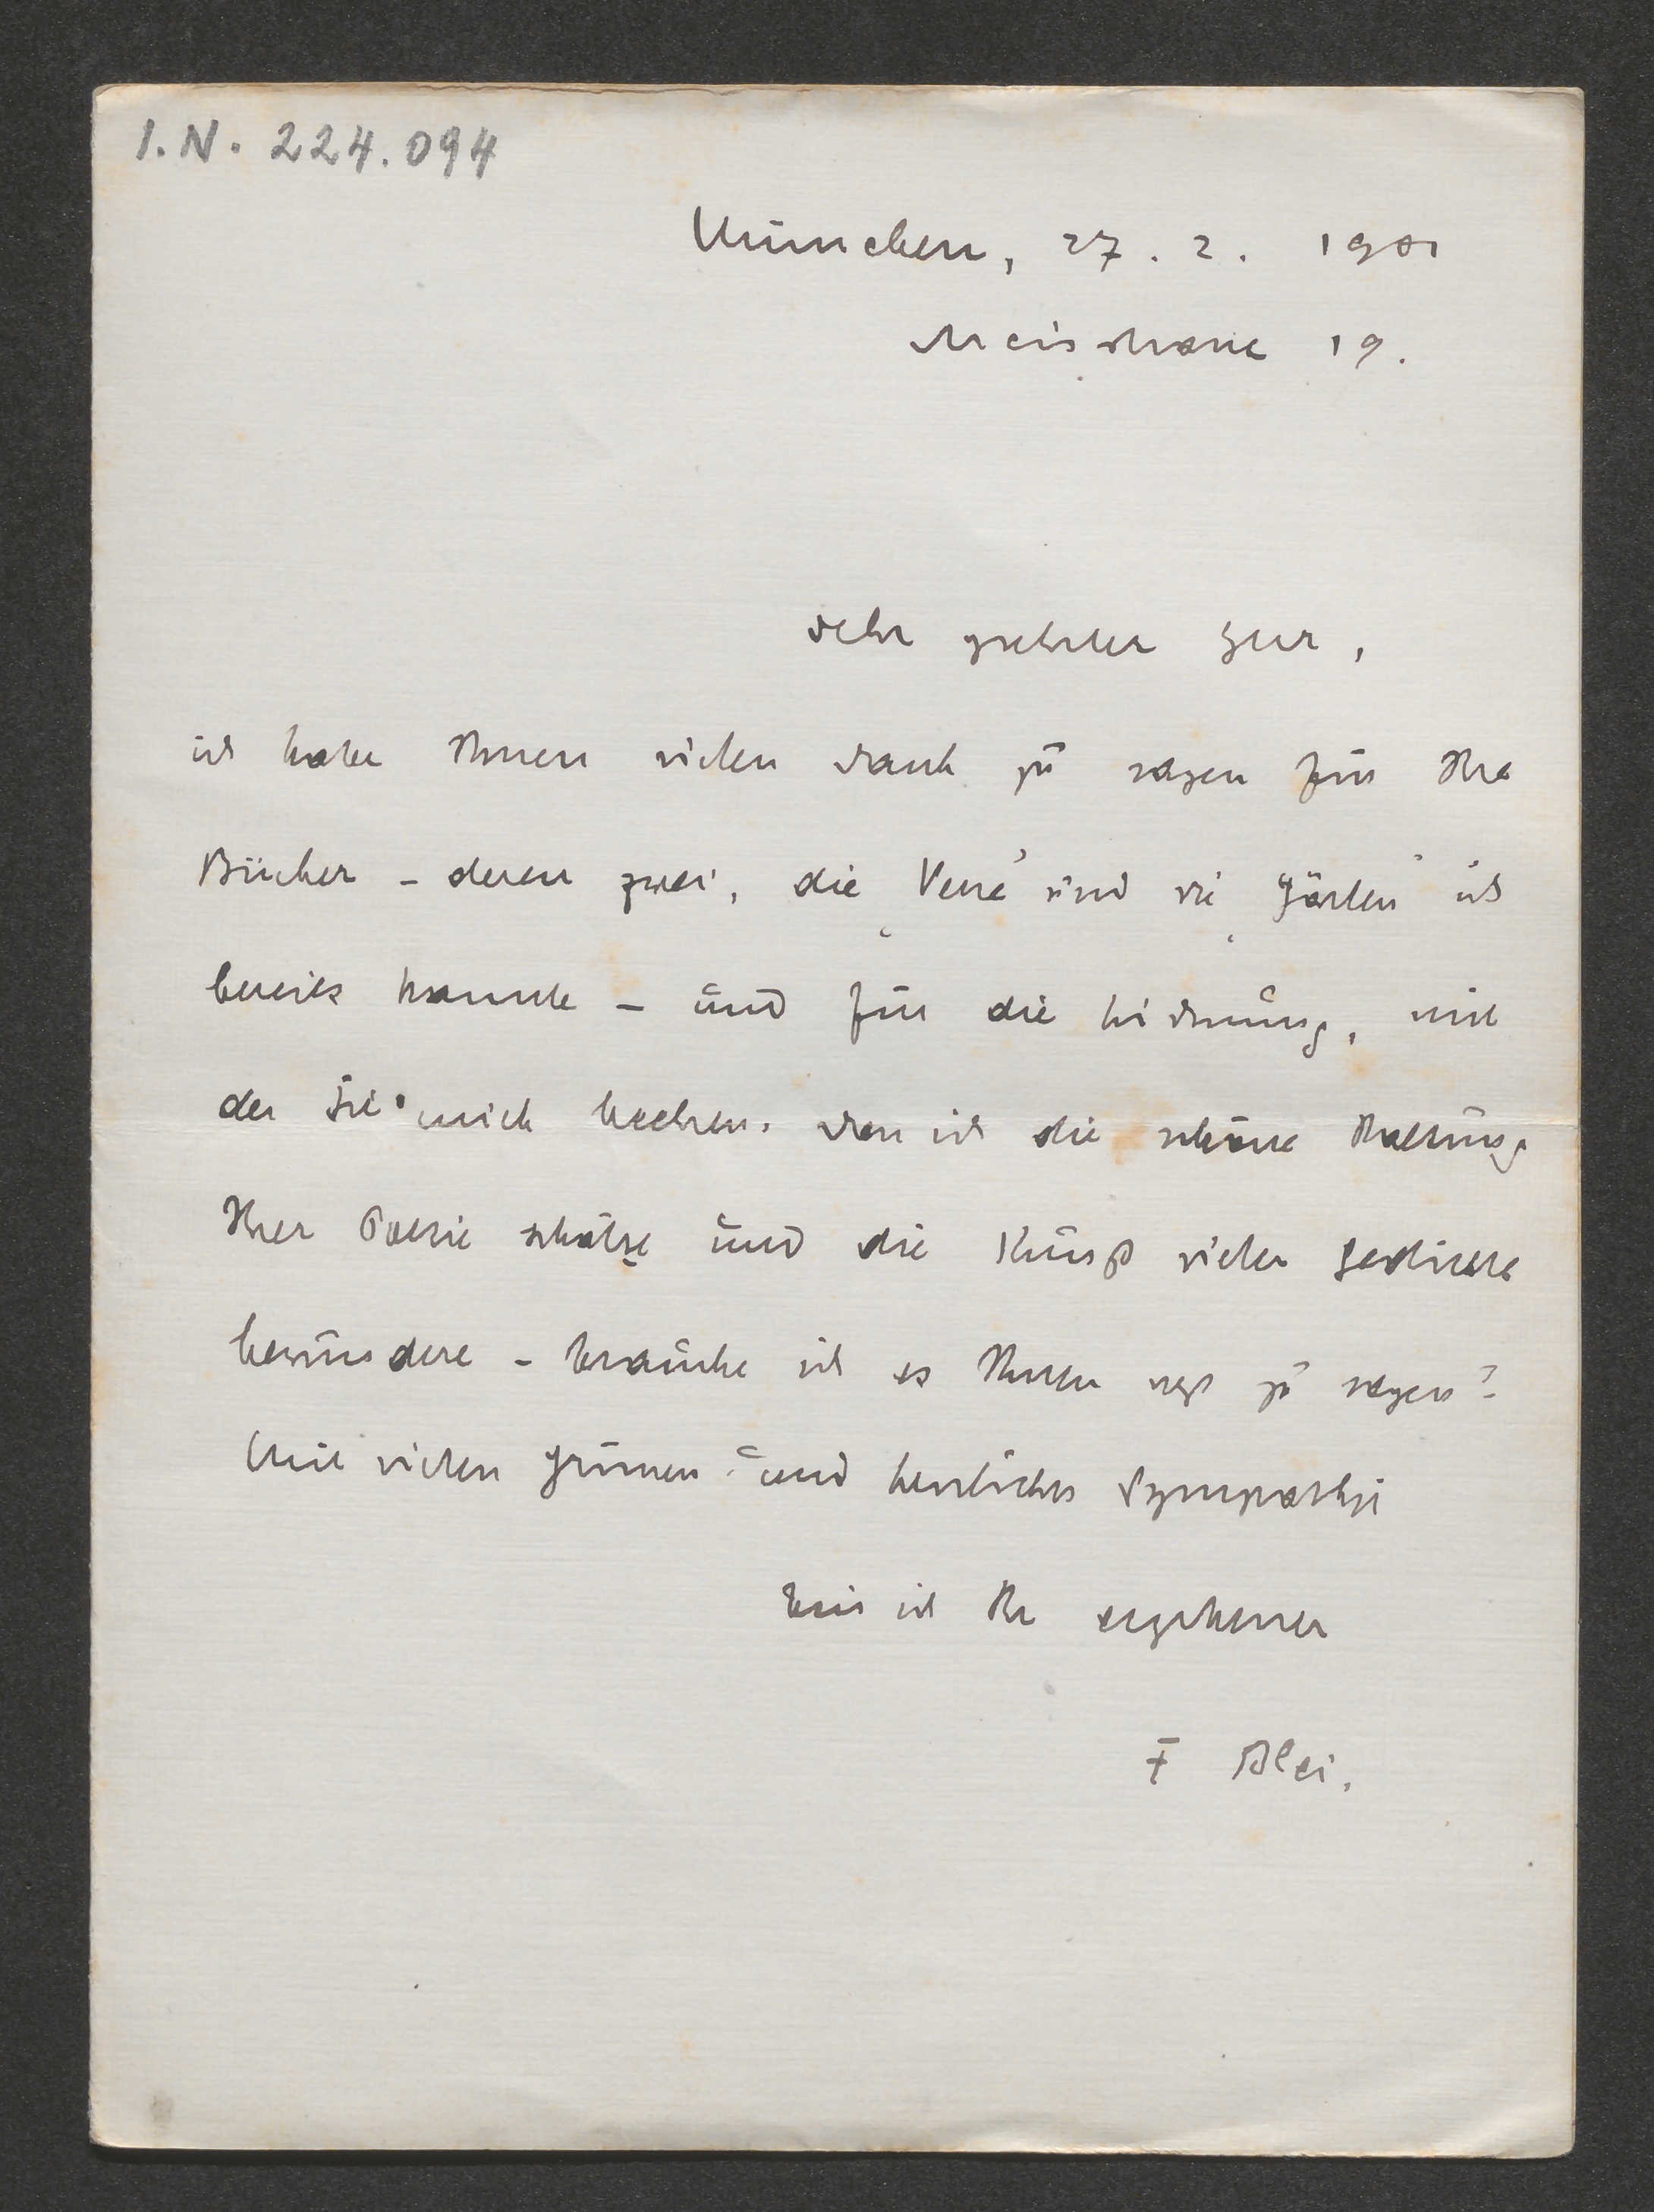 I.N. 224.094
München, 27. 2. 1901
Maistrasse 19.
Sehr geehrter Herr,
ich habe Ihnen vielen Dank zu sagen für Ihre
Bücher – deren zwei, die „Verse“ und die „Gärten“ ich
bereits kannte – und für die Widmung, mit
der Sie mich beehren. Dass ich die schöne Haltung
Ihrer Poesie schätze und die Kunst vieler Gedichte
bewundere – brauche ich es Ihnen erst zu sagen?
Mit vielen Grüssen und herzlicher Sympathie
bin ich Ihr ergebener
F Blei.